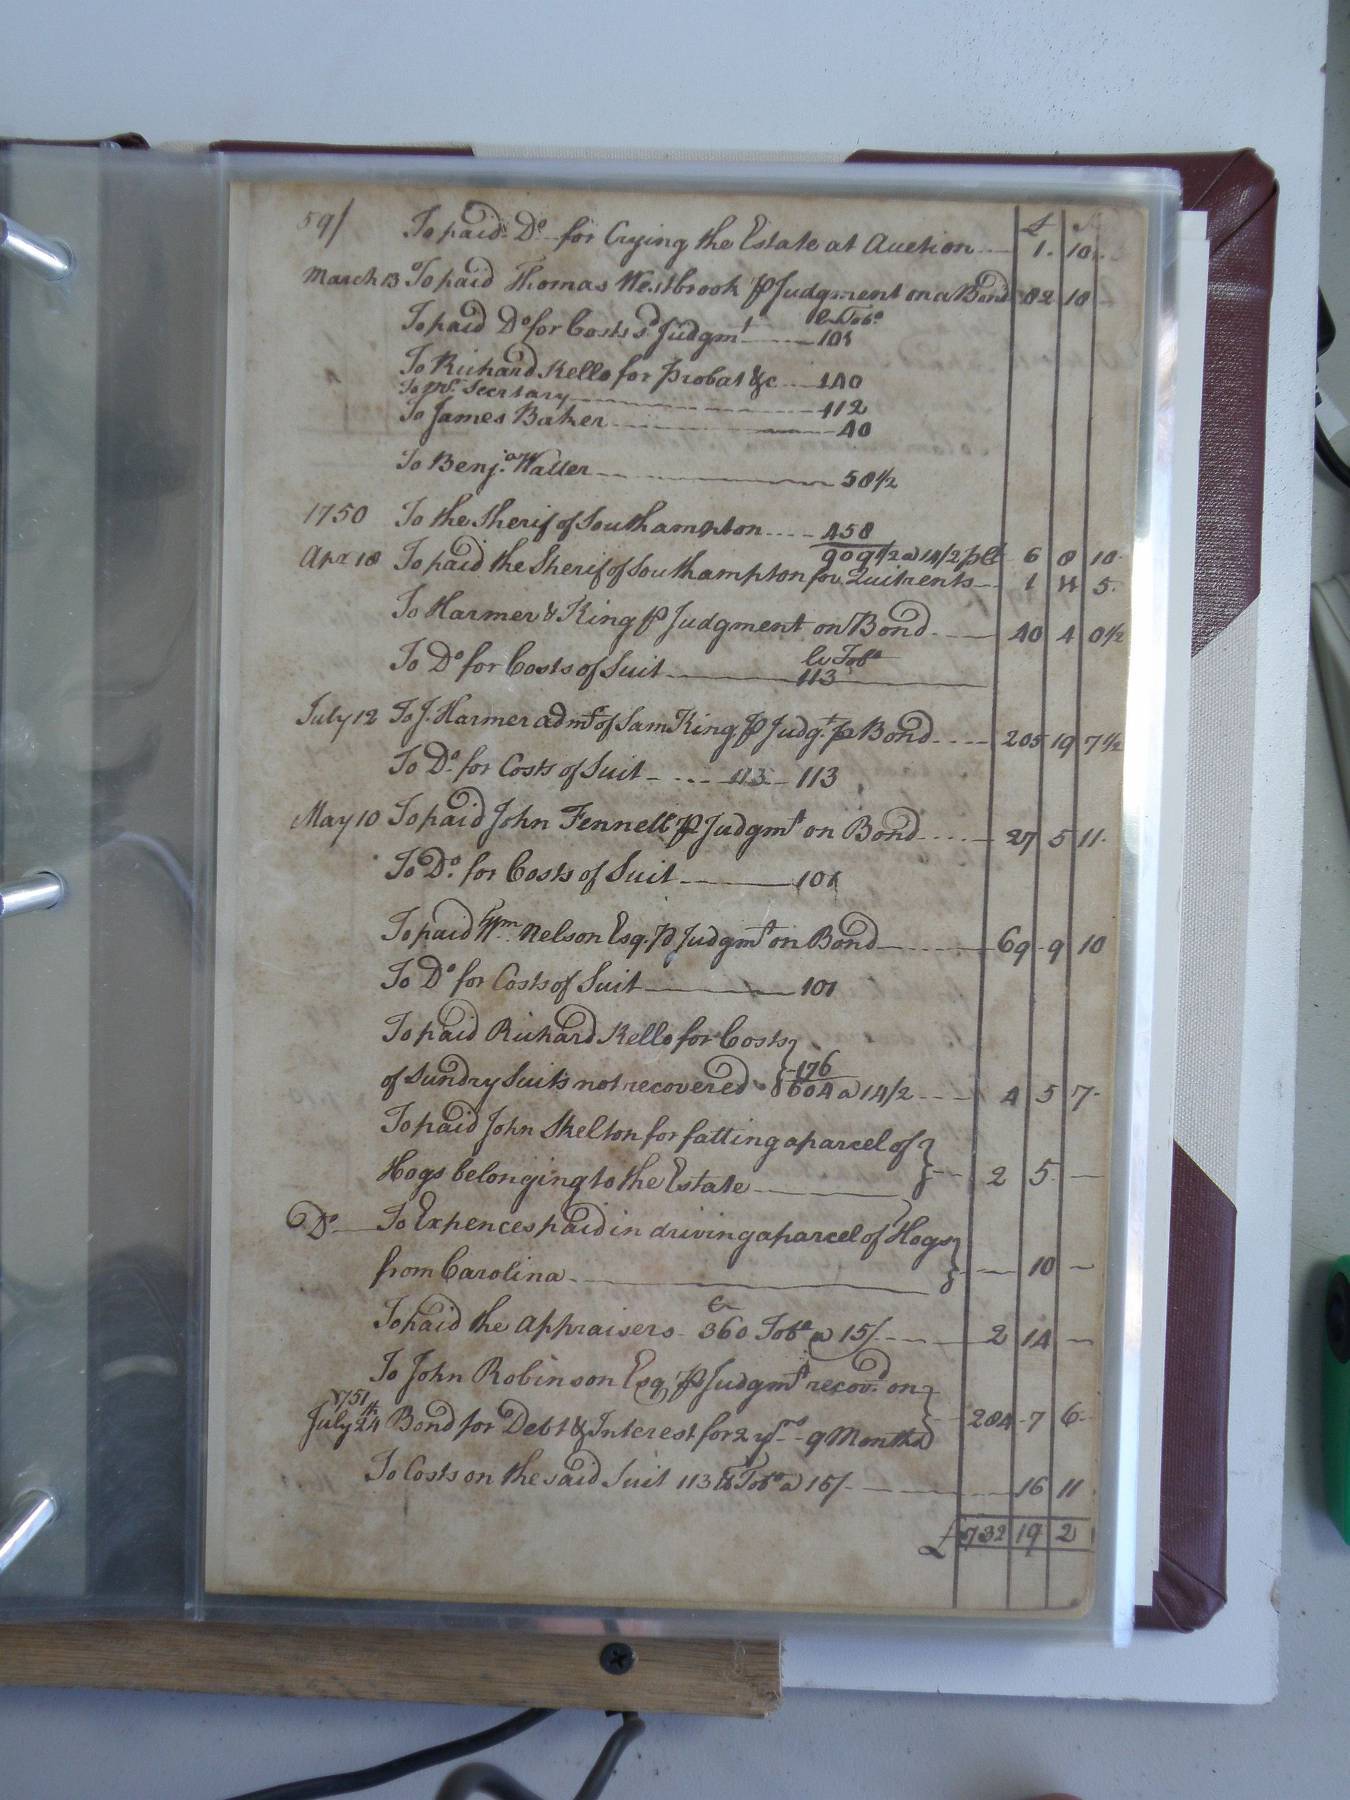 59/ £ S
To paid Do for Crying the Estate at Auction 1. 10.
March 13 To paid Thomas Westbrook ⅌ Judgment on a Bond 82 18
lb Tobo
To paid Do for Costs sd Judgmt 101
To Richard Kello for Probat &c 140
To Mr Secrtary 112
To James Baker 40
To Benja Waller 58½
1750 To the Sherif of Southampton 458
909½ a 14/2 ⅌Ct 6 8 10
Apr 18 To paid the Sherif of Southampton for Quitrents 1 11 5
To Harmer & King ⅌ Judgment on Bond 40 4 0½
lb Tobo
To Do for Costs of Suit 113
July 12 To J. Harmer admr of Sam King ⅌ Judgt ⅌ Bond 205 19 7½
To Do for Costs of Suit 113 113
May 10 To paid John Fennell ⅌ Judgmt on Bond 27 5 11
To Do for Costs of Suit 101
To paid Wm Nelson Esq. ⅌ Judgmt on Bond 69 9 10
To Do for Costs of Suit 101
To paid Richard Kello for Costs
of Sundry Suits not recovered 176
604 a 14/2 4 5 7
To paid John Skelton for fatting a parcel of
Hogs belonging to the Estate 2 5 —
Do To Expences paid in driving a parcel of Hogs
from Carolina 10 —
To paid the Appraisers 360 Tobo a 15/ 2 14 —
To John Robinson Esq ⅌ Judgmt recovd on
1751
July 24th Bond for Debt & Interest for 2 yrs 9 Months 284 7 6
To Costs on the said Suit 113 lb Tobo a 15/ 16 11
£ 732 19 2